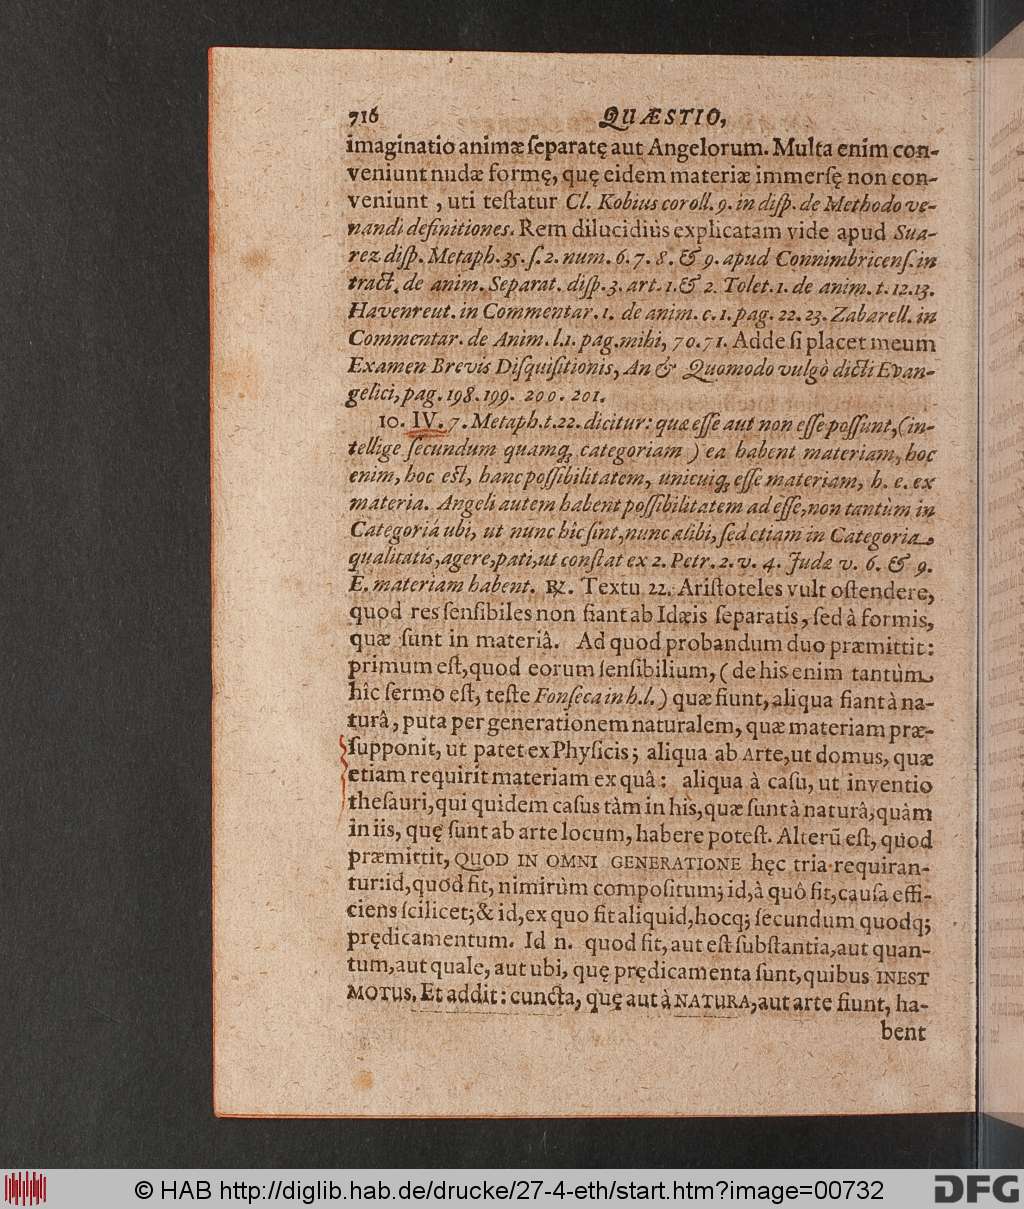 716 QUÆSTIO,
imaginatio animæ ſeparatę aut Angelorum. Multa enim con-
veniunt nudæ formę, quę eidem materiæ immerſę non con-
veniunt, uti teſtatur Cl. Kobius coroll. 9. in diſp. de Methodo ve-
nandi definitiones. Rem dilucidiùs explicatam vide apud Sua-
rez diſp. Metaph. 35. ſ. 2. num. 6. 7. 8. & 9. apud Connimbricenſ. in
tract. de anim. Separat. diſp. 3. art. 1. & 2. Tolet. 1. de anim. t. 12. 13.
Havenreut. in Commentar. 1. de anim. c. 1. pag. 22. 23. Zabarell. in
Commentar. de Anim. l. 1. pag. mihi, 70. 71. Adde ſi placet meum
Examen Brevis Diſquiſitionis, An & Quomodo vulgò dicti Evan-
gelici, pag. 198. 199. 200. 201.
10. IV. 7. Metaph. t. 22. dicitur: quæ eſſe aut non eſſe poſſunt, (in-
tellige ſecundum quamq; categoriam) ea habent materiam, hoc
enim, hoc eſt, hanc poſſibilitatem, unicuiq; eſſe materiam, h. e. ex
materia. Angeli autem habent poſſibilitatem ad eſſe, non tantùm in
Categoriâ ubi, ut nunc hîc ſint, nunc alibi, ſed etiam in Categoria
qualitatis, agere, pati, ut conſtat ex 2. Petr. 2. v. 4. Judæ v. 6. & 9.
E. materiam habent. ℞. Textu 22. Ariſtoteles vult oſtendere,
quod res ſenſibiles non fiant ab Idæis ſeparatis, ſed à formis,
quæ ſunt in materiâ. Ad quod probandum duo præmittit:
primum eſt, quod eorum ſenſibilium, (de his enim tantùm
hîc ſermo eſt, teſte Fonſeca in h. l.) quæ fiunt, aliqua fiant à na-
turâ, puta per generationem naturalem, quæ materiam præ-
ſupponit, ut patet ex Phyſicis; aliqua ab Arte, ut domus, quæ
etiam requirit materiam ex quâ: aliqua à caſu, ut inventio
theſauri, qui quidem caſus tàm in his, quæ ſunt à naturâ, quàm
in iis, quę ſunt ab arte locum, habere poteſt. Alterū eſt, quod
præmittit, QUOD IN OMNI GENERATIONE hęc tria requiran-
tur: id, quod fit, nimirùm compoſitum; id, à quô fit, cauſa effi-
ciens ſcilicet; & id, ex quo fit aliquid, hocq; ſecundum quodq;
prędicamentum. Id n. quod fit, aut eſt ſubſtantia, aut quan-
tum, aut quale, aut ubi, quę prędicamenta ſunt, quibus INEST
MOTUS. Et addit: cuncta, quę aut à NATURA, aut arte fiunt, ha-
bent
© HAB http://diglib.hab.de/drucke/27-4-eth/start.htm?image=00732
DFG